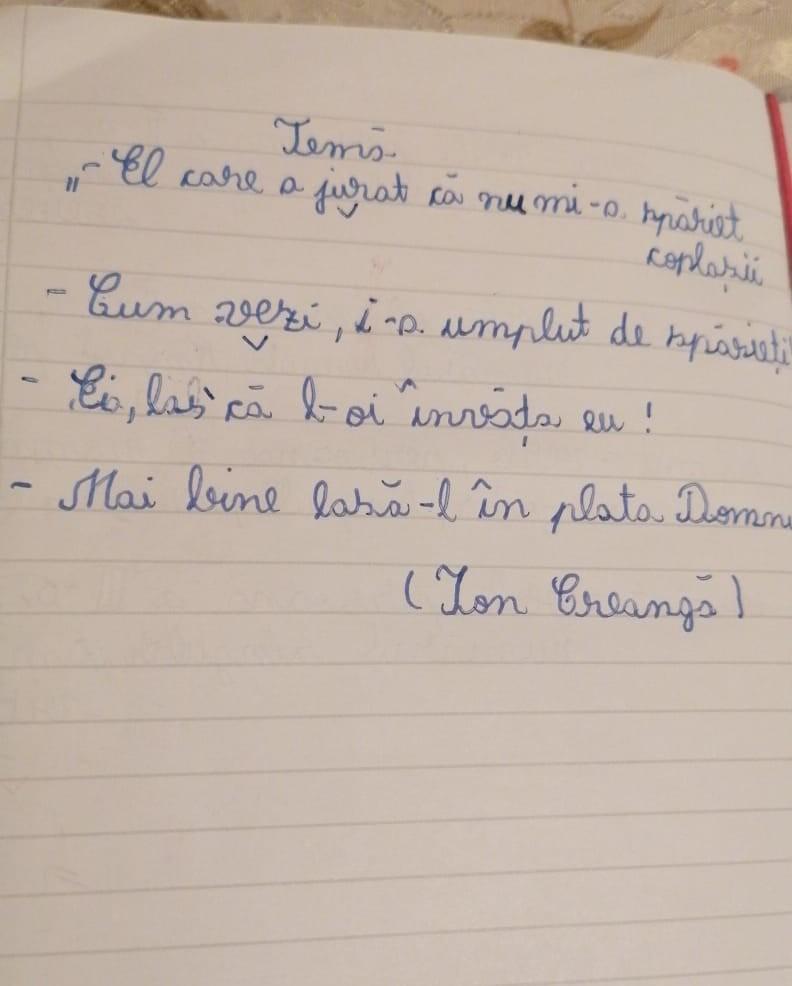 Temă
„- El care a jurat că nu mi-a spăriet
coplașii
- Cum vezi, i-a umplut de spărieți
- Ei, las' că l-oi învăța eu!
- Mai bine lasă-l în plata Domnu
(Ion Creangă)